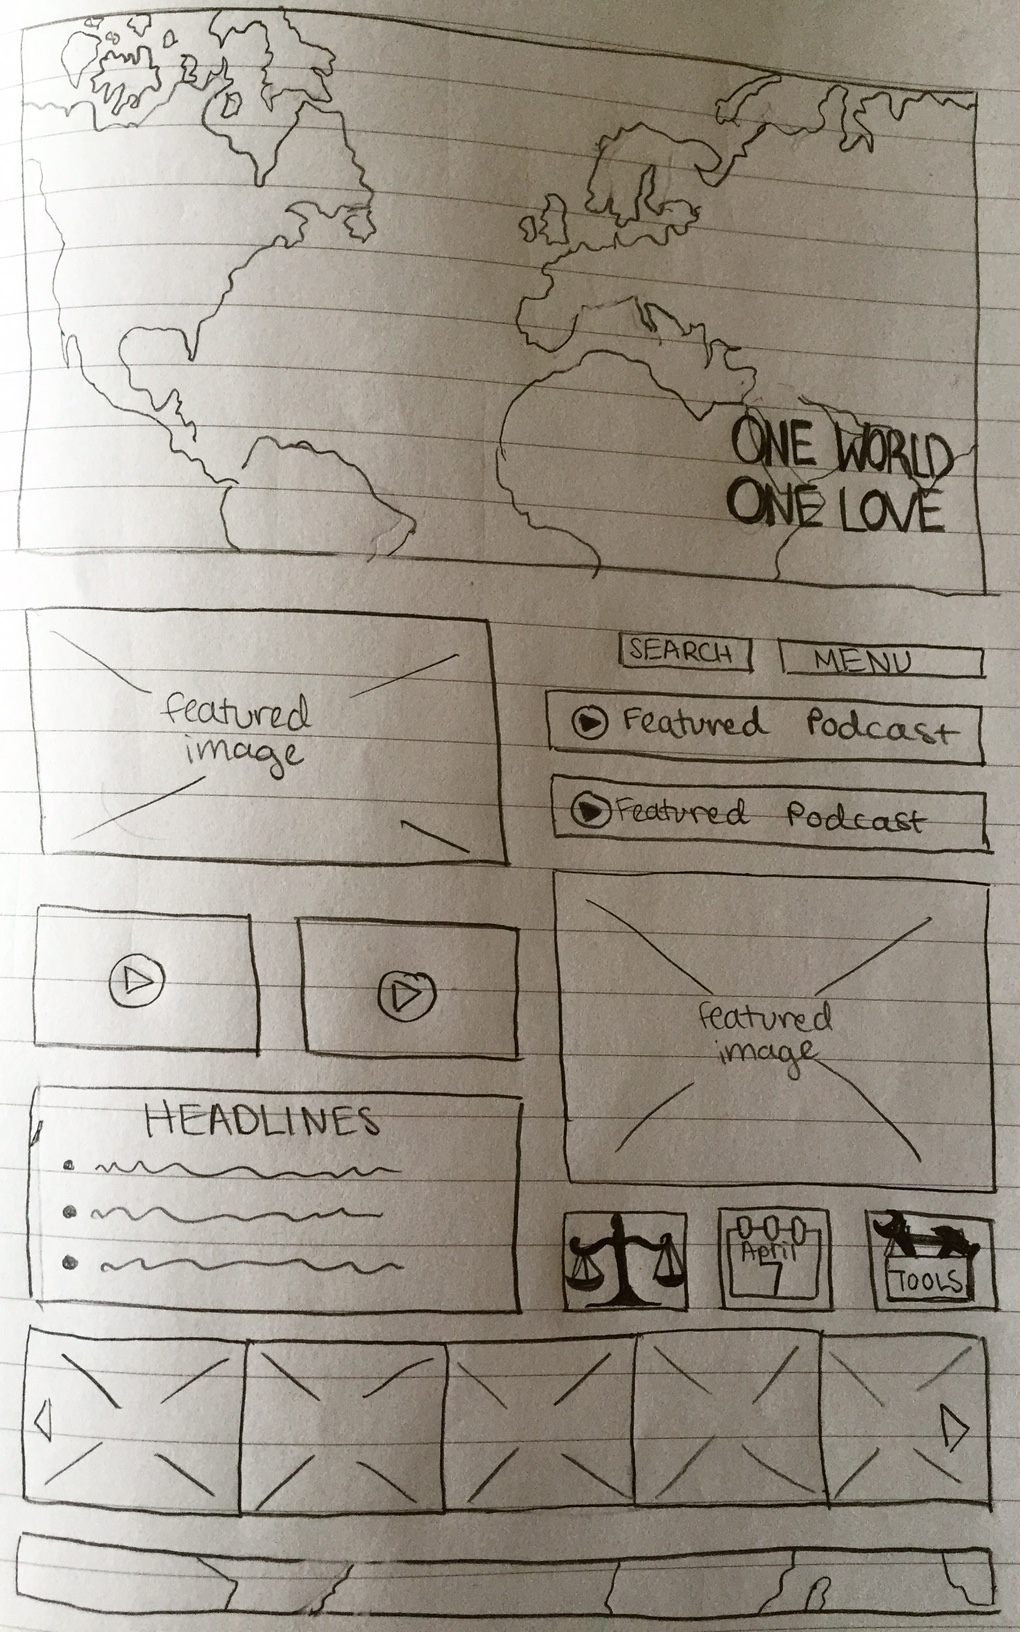 ONE WORLD
ONE LOVE
featured
image
SEARCH
MENU
Featured Podcast
Featured Podcast
featured
image
HEADLINES
April
7
TOOLS